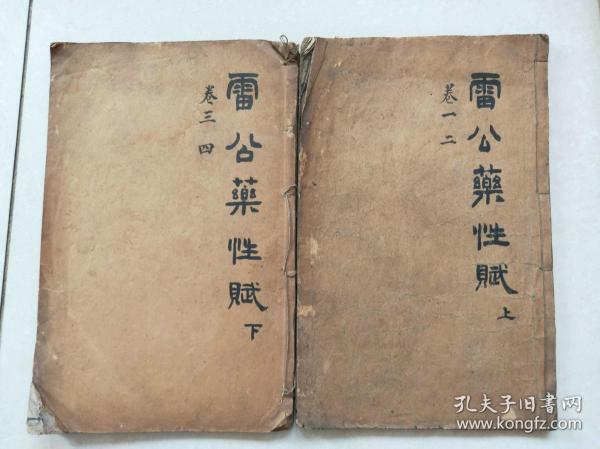 雷公藥性賦 上
卷一二
雷公藥性賦 下
卷三四
孔夫子旧书网
www.kongfz.com